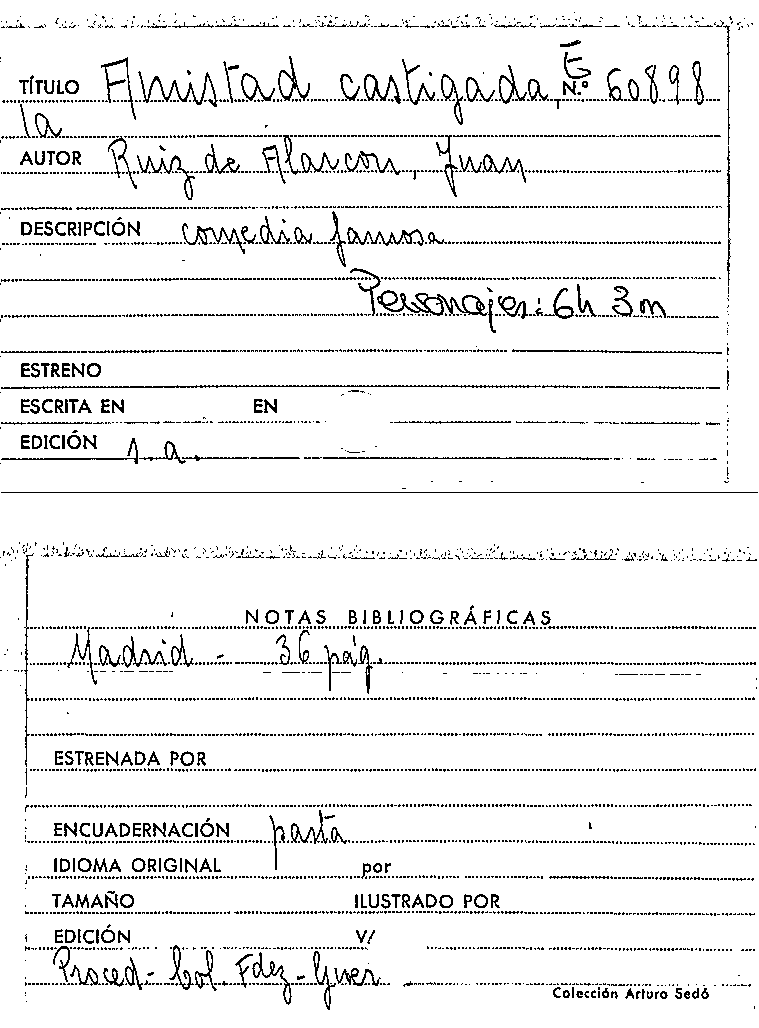 E
TÍTULO Amistad castigada, N.º 60898
la
AUTOR Ruiz de Alarcon, Juan
DESCRIPCIÓN comedia famosa
Personajes: 6h 3m
ESTRENO
ESCRITA EN EN
EDICIÓN s.a.
NOTAS BIBLIOGRÁFICAS
Madrid - 36 pág.
ESTRENADA POR
ENCUADERNACIÓN pasta
IDIOMA ORIGINAL por
TAMAÑO ILUSTRADO POR
EDICIÓN V/
Proced- Col. Fdez-Guer
Colección Arturo Sedó